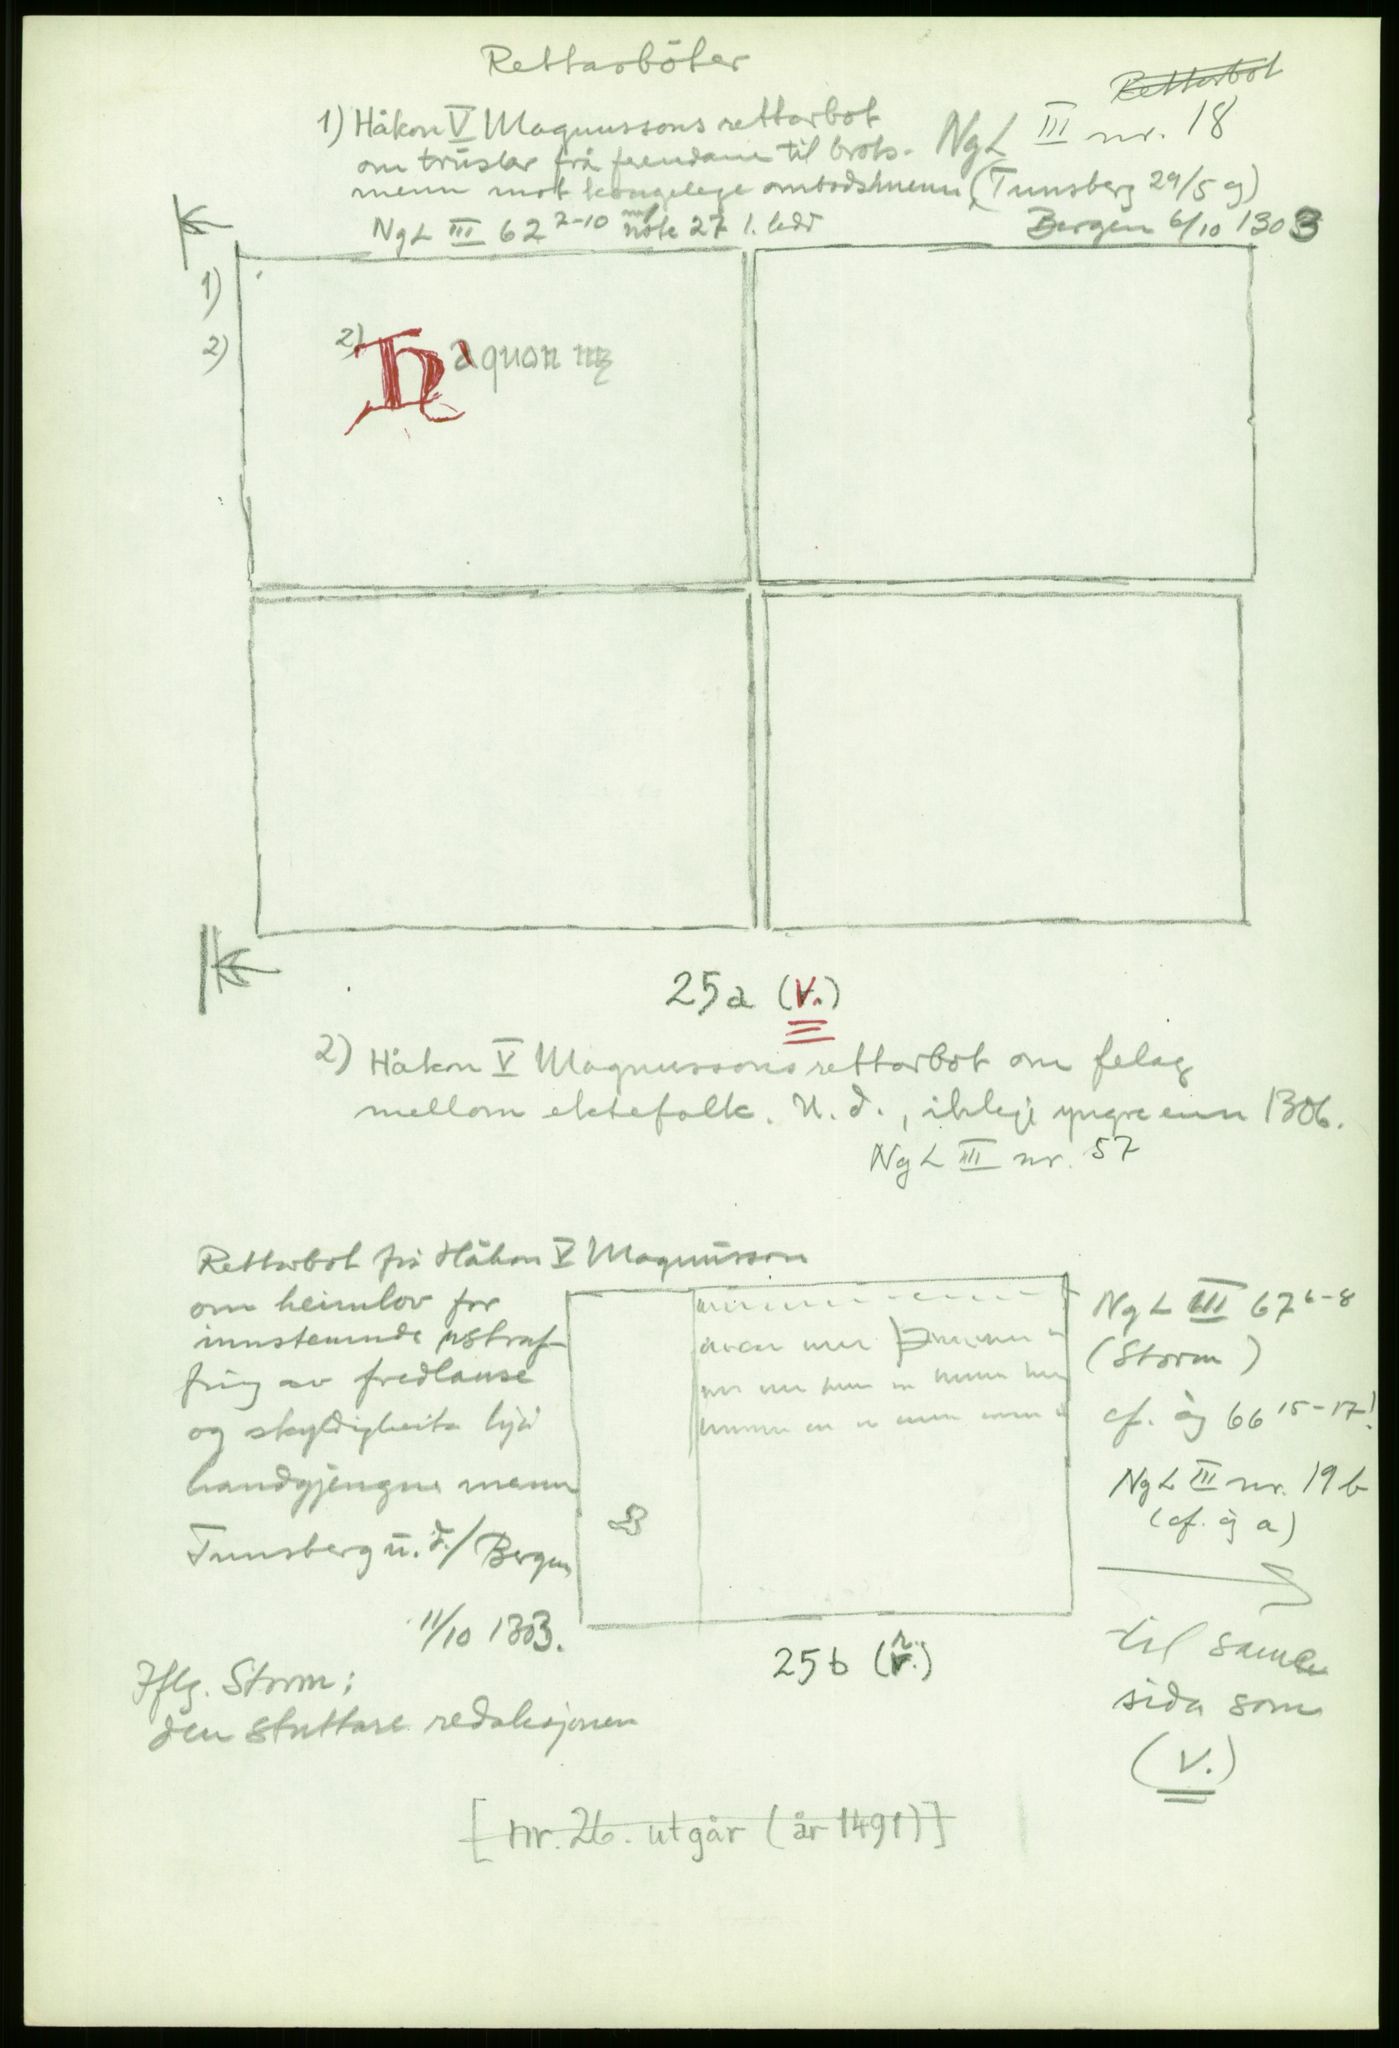 Rettarböter
Rettarbot
1) Håkon V Magnussons rettarbot
NgL III nr. 18
om truslar frå frendane til brots-
menn mot kongelege ombodsmenn (Tunsberg 29/5 og
NgL III 62 7-10 m/ note 27 1. ledd
Bergen 6/10 1303
1)
2)
2) Haquon
25a (v.)
2) Håkon V Magnussons rettarbot om felag
mellom ektefolk. U. d., ikkje yngre enn 1306.
NgL III nr. 57
Rettarbot frå Håkon V Magnusson
om heimlov for
innstemnde, straf-
fing av fredlause
og skyldigheita hjå
handgjengne menn
Tunsberg u. d./Bergen
11/10 1303.
NgL III 67 6-8
(Storm)
cf. òg 66 15-17!
NgL III nr. 19 b
(cf. òg a)
25b (r.)
til same
sida som
(v.)
Iflg. Storm:
den stuttare redaksjonen
[nr. 26. utgår (år 1491)]